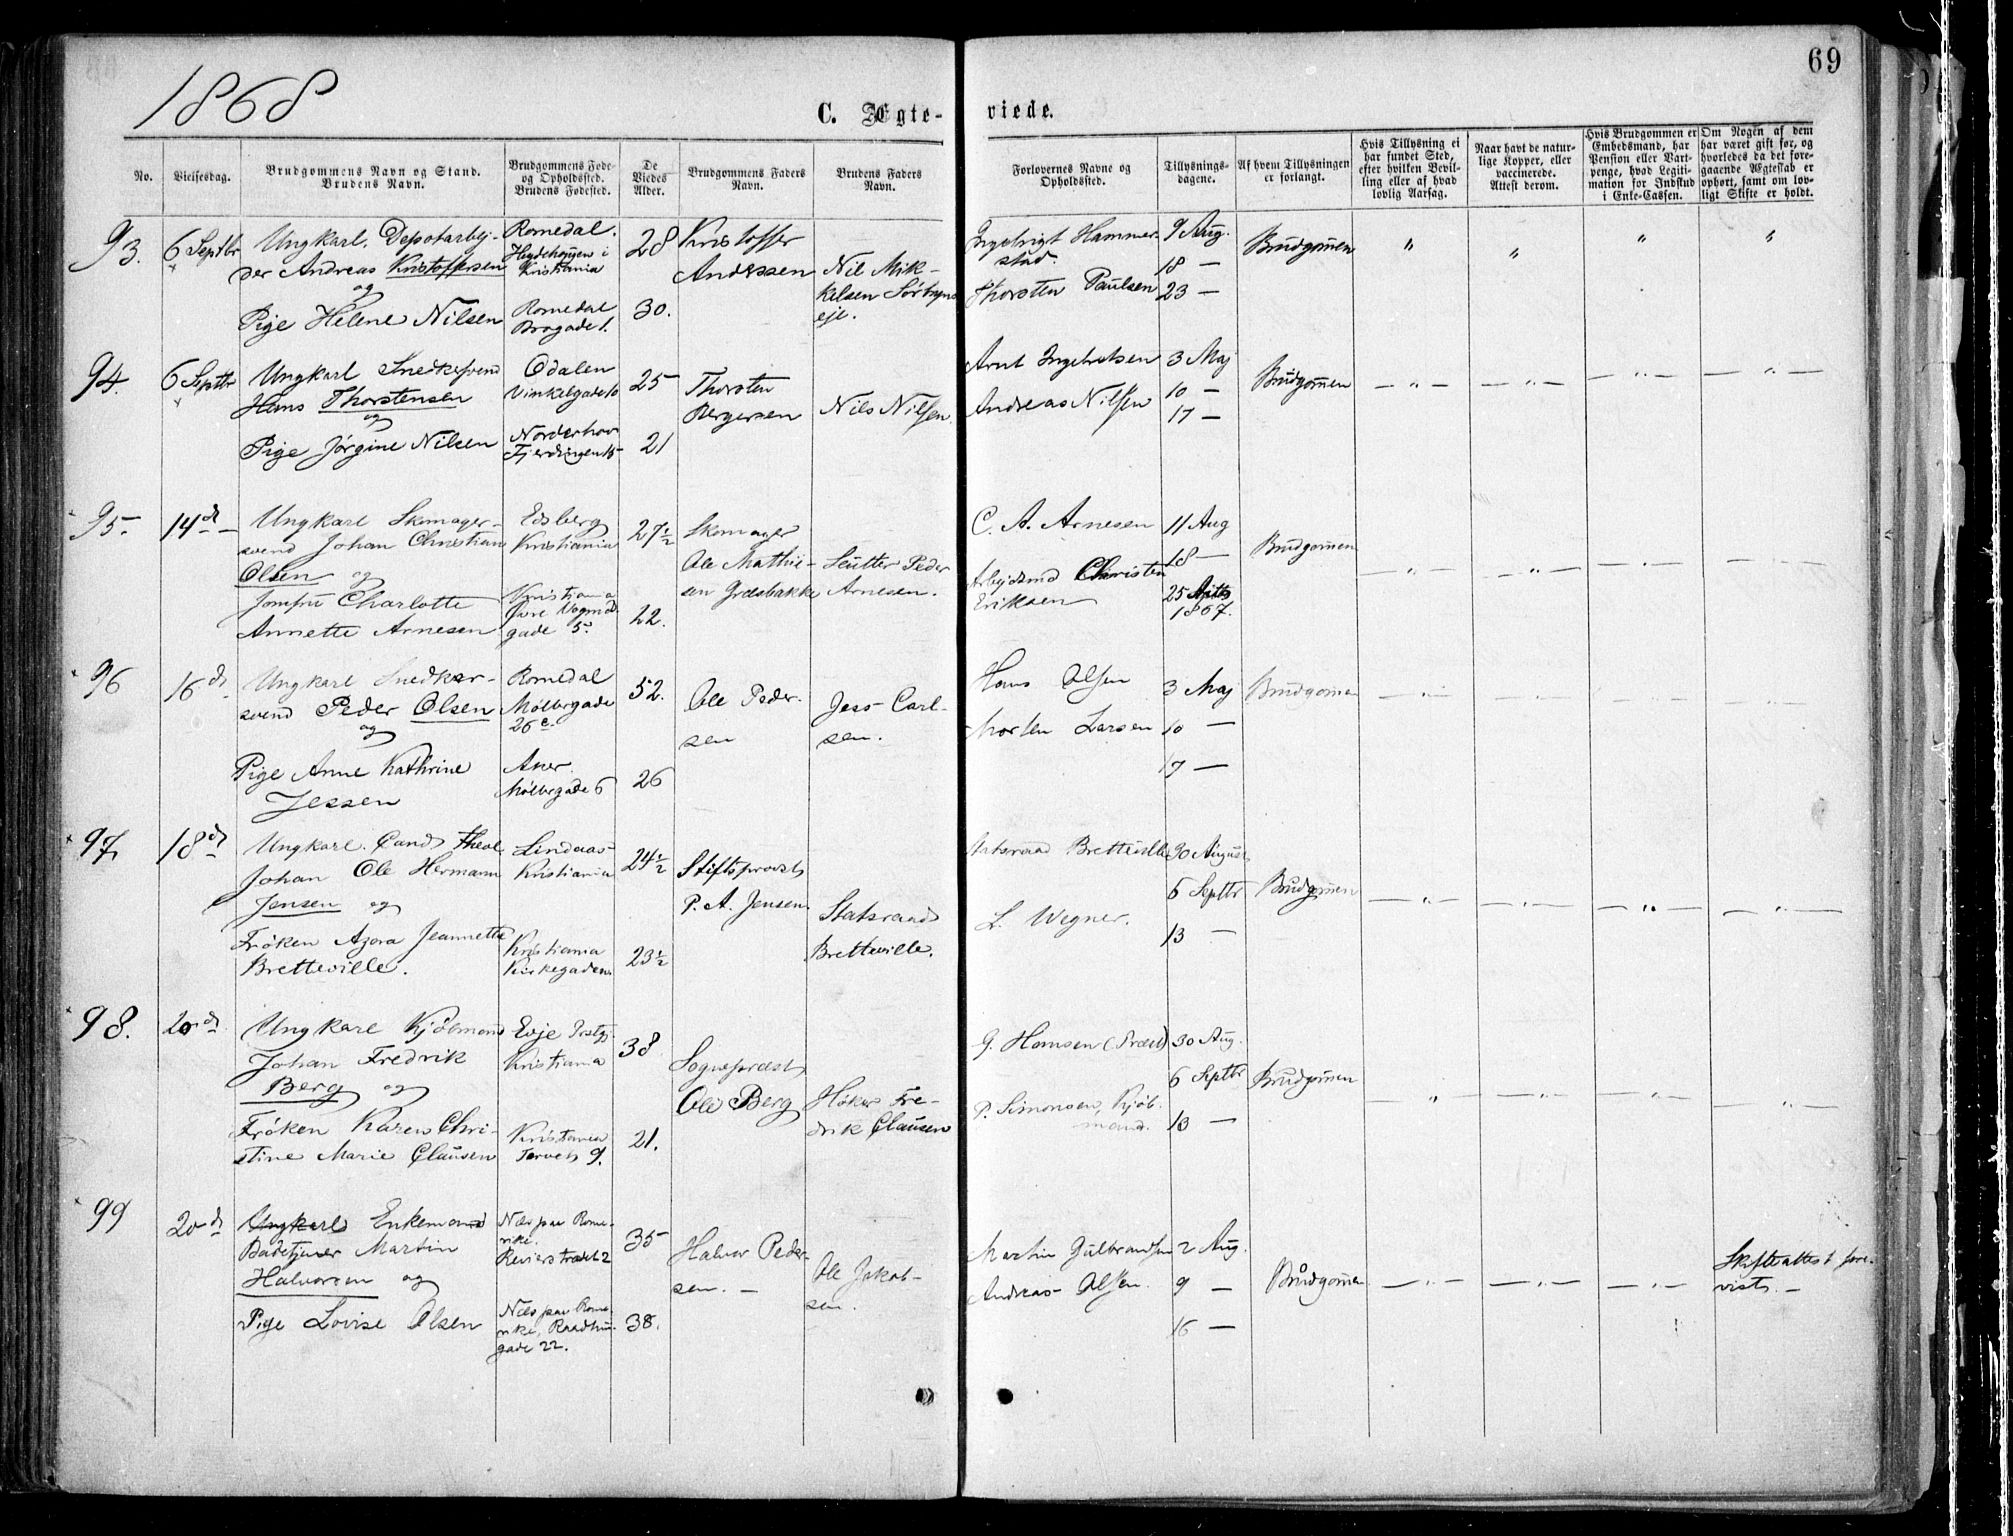 1868
69
C. Ægte-
viede.
No.
Vielsesdag.
Brudgommens Navn og Stand.
Brudens Navn.
Brudgommens Føde-
og Opholdssted.
Brudens Fødested.
De
Viedes
Alder.
Brudgommens Faders
Navn.
Brudens Faders
Navn.
Forlovernes Navne og
Opholdssted.
Tillysnings-
dagene.
Af hvem Tillysningen
er forlangt.
Hvis Tillysning ei
har fundet Sted,
efter hvilken Bevil-
ling eller af hvad
lovlig Aarsag.
Naar havt de natur-
lige Kopper, eller
vaccinerede.
Attest derom.
Hvis Brudgommen er
Embedsmand, har
Pension eller Vart-
penge, hvad Legiti-
mation for Indskud
i Enke-Cassen.
Om Nogen af dem
har været gift før, og
hvorledes da det fore-
gaaende Ægteskab er
ophørt, samt om lov-
ligt Skifte er holdt.
93.
6 Septbr
Ungkarl. Depotarbej-
der Andreas Kristoffersen
og
Pige Helene Nilsen
Romedal.
Hegdehougen i
Kristiania
Romedal
Brogade 1.
28
30.
Kristoffer
Anderssen
Nil Mik-
kelsen Sørbyns
eje.
Ingebrigt Hammer-
stad.
Thorsten Paulsen
9 Aug.
18 —
23 —
Brudgomen
" " " "
94.
6 Septbr
Ungkarl Snedkersvend
Hans Thorstensen
og
Pige Jørgine Nilsen
Odalen
Vinkelgade 10
Norderhov
Fjerdingen 15
25
21
Thorsten
Bergersen
Nils Nilsen.
Arnt Ingebretsen
Andreas Nilsen
3 Maj
10 —
17 —
Brudgomen
— " — — " — — " — — " —
95.
14 d —
Ungkarl Skomager-
svend Johan Christian
Olsen og
Jomfru Charlotte
Annette Arnesen
Edsberg
Kristiania
Kristiania
gade 5.
27½
22.
Skomager
Ole Mathie-
sen Græsbakke
Peder
Arnesen.
C. A. Arnesen
Arbejdsmd Christen
Eriksen
11 Aug
18 —
25
1867.
Brudgomen
— " — — " — — " — — " —
96
16 d
Ungkarl Snedker-
svend Peder Olsen
og
Pige Anne Kathrine
Jessen
Romedal
Møllergade
26 c.
Aker.
Møllergade 6
52.
26
Ole Peder-
sen
Jess Carl-
sen.
Hans Olsen
Morten Larsen
3 Maj
10 —
17 —
Brudgomen
— " — — " — — " — — " —
97.
18 d
Ungkarl. Cand. theol.
Johan Ole Hermann
Jensen og
Frøken Azora Jeannette
Bretteville.
Lindaas
Kristiania
Kristiania
Kirkegaden
24½
23½
Stiftsprovst
P. A. Jensen.
Statsraad
Bretteville.
Statsraad Bretteville
L. Wegner.
30 August
6 Septbr
13 —
Brudgomen
— " — — " — — " — — " —
98.
20 d
Ungkarl Kjøbmand
Johan Fredrik
Berg og
Frøken Karen Chri-
stine Marie Clausen
Evje Prstgj.
Kristiania
Kristiania
Torvet 9.
38
21.
Sogneprest
Ole Berg
Høker Fre-
drik Clausen
G. Homsen (Præst)
P. Simonsen, Kjøb-
mand.
30 Aug.
6 Septbr
13 —
Brudgomen
— " — — " — — " — — " —
99
20 d
Ungkarl Enkemand
Badetjener Martin
Halvorsen og
Pige Lovise Olsen
Næs paa Rome-
rike.
Revierstrædet 2
Næs paa Rome-
rike, Raadhus-
gade 22.
35
38.
Halvor Peder-
sen. —
Ole Jakob-
sen.
Martin Gulbrandsen
Andreas Olsen.
2 Aug.
9 —
16 —
Brudgomen
— " — — " — — " —
Skifteattest fore-
vist. —